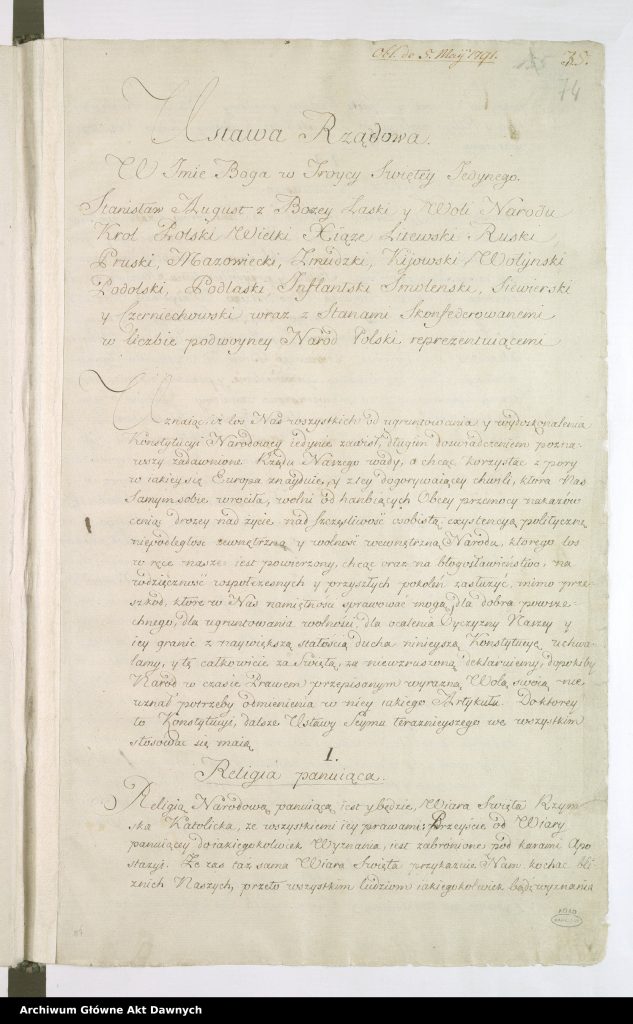 Obl. de 5. Maij 1791.
75.
74
Ustawa Rządowa.
W Imie Boga w Troycy Swiętey Iedynego.
Stanisław August z Bozey Łaski y Woli Narodu
Krol Polski Wielki Xiąze Litewski Ruski
Pruski, Mazowiecki, Zmudzki, Kijowski Wołynski
Podolski, Podlaski, Inflantski Smolenski, Siewierski
y Czerniechowski, wraz z Stanami Skonfederowanemi
w liczbie podwoyney Naród Polski reprezentuiącemi
Uznaiąc, iż los Nas wszystkich od ugruntowania y wydoskonalenia
Konstytucyi Narodowey iedynie zawisł, długim doswiadczeniem pozna-
wszy zadawnione Rządu Naszego wady, a chcąc korzystac z pory
w iakiey się Europa znayduie, y z tey dogorywaiącey chwili, ktora Nas
samym sobie wrociła, wolni od hanbiących Obcey przemocy nakazów
ceniąc drozey nad zycie, nad szczęsliwość osobistą, exystencyą polityczną
niepodległosc zewnętrzną y wolność wewnętrzną Narodu, ktorego los
w ręce nasze iest powierzony, chcąc oraz na błogosławieństwo, na
wdzięczność wspołczesnych y przyszłych pokoleń zasłużyć, mimo prze-
szkod, ktore w Nas namiętności sprawować mogą, dla dobra powsze-
chnego, dla ugruntowania wolności, dla ocalenia Oyczyzny Naszey y
iey granic z naywiększą stałością ducha ninieyszą Konstytucyę uchwa-
lamy, y tę całkowicie za Swiętą, za niewzruszoną deklaruiemy, dopokiby
Naród w czasie Prawem przepisanym wyrazną Wolą swoią nie
uznał potrzeby odmienienia w niey iakiego Artykułu. Do ktorey
to Konstytucyi, dalsze Ustawy Seymu teraznieyszego we wszystkim
stosować się maią
I.
Religia panuiąca.
Religią Narodową panuiącą iest y będzie, Wiara Swięta Rzym
ska Katolicka, ze wszystkiemi iey prawami; Przeyscie od Wiary
panuiącey do iakiegokolwiek Wyznania, iest zabronione pod karami Apo
stazyi. Ze zas taz sama Wiara Swięta przykazuie Nam kochac bli
znich Naszych, przeto wszystkim ludziom iakiegokolwiek bądz wyznania
Archiwum Główne Akt Dawnych